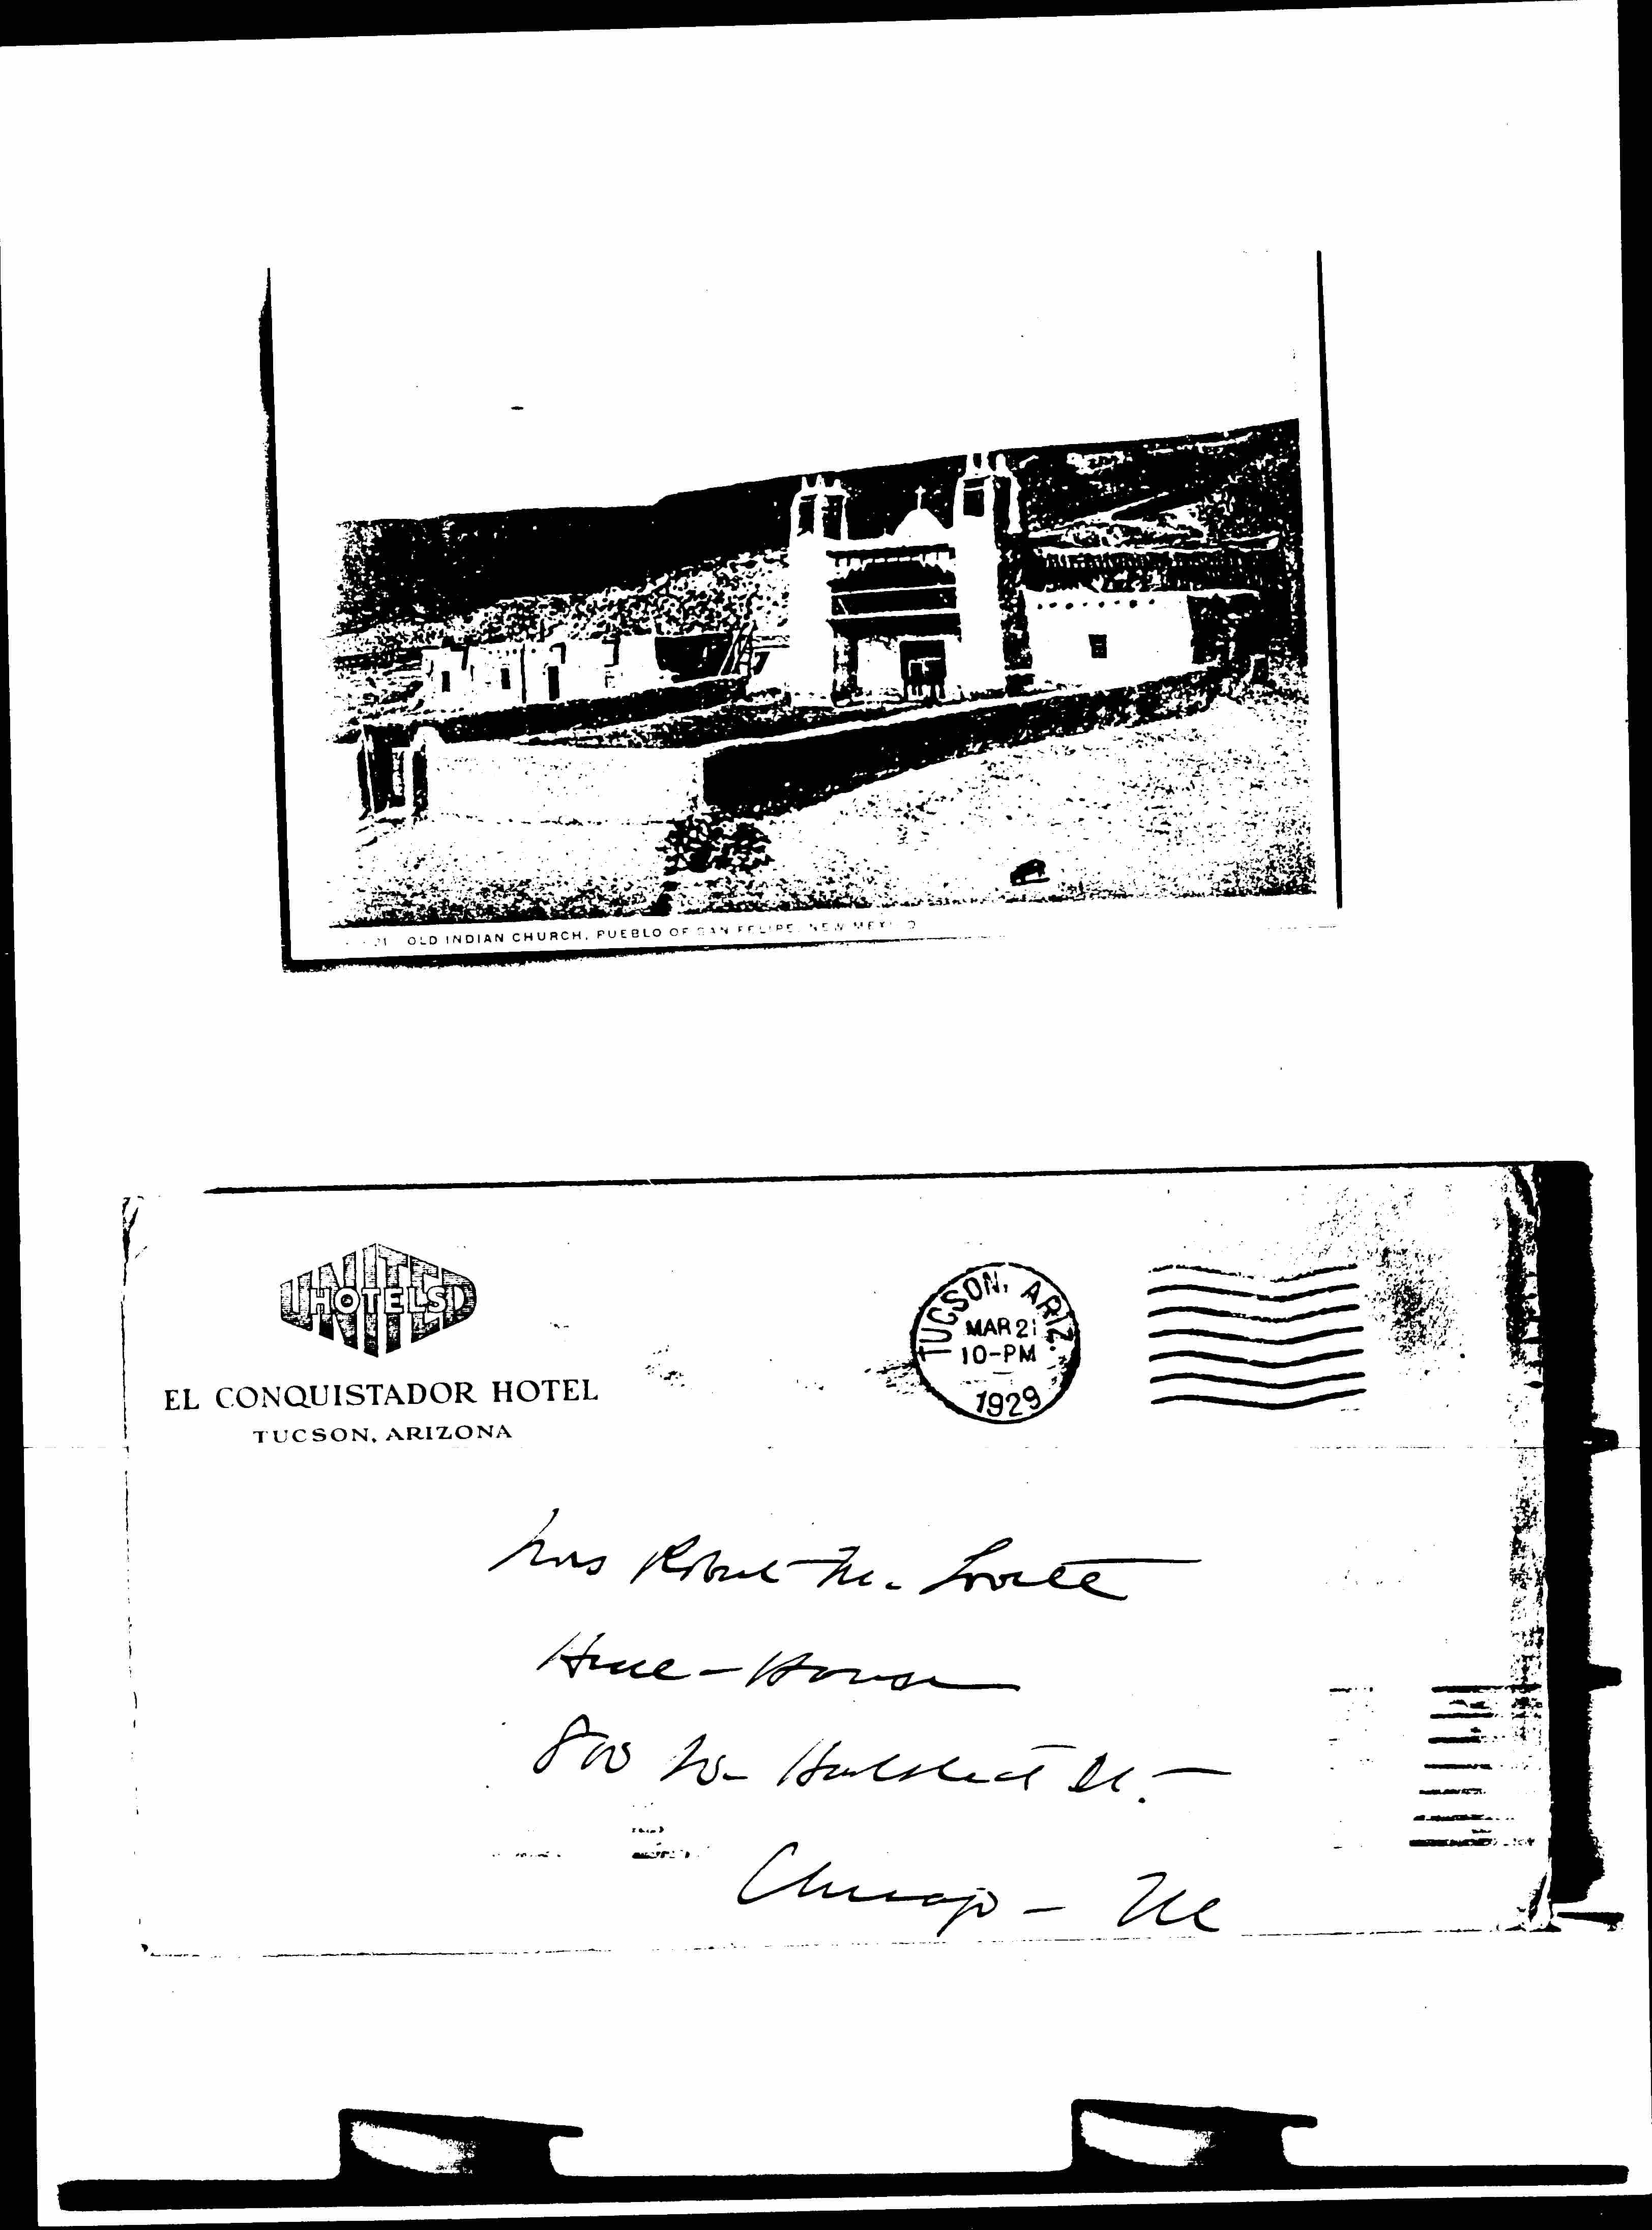 OLD INDIAN CHURCH, PUEBLO OF SAN FELIPE, NEW MEXICO
UNITED
HOTELS
EL CONQUISTADOR HOTEL
TUCSON, ARIZONA
TUCSON, ARIZ.
MAR 21
10-PM
1929
Mrs Robert M. Lovett
Hull-House
800 So. Halsted St.
Chicago - Ill